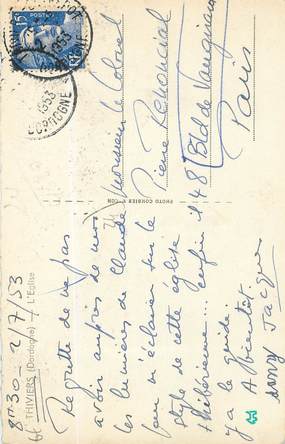 8h30 - 2/7/53
THIVIERS (Dordogne) - L'Eglise
Regrette de ne pas
avoir auprès de nous
les lumières de Claude
pour m'éclairer sur le
style de cette église
thibérienne... enfin il
y a le guide !
A bientôt
Jacques
PHOTO COMBIER
Monsieur le Colonel
Pierre
48 Bld de Vaugirard
Paris
15F
1953
DORDOGNE
2
1953
DORDOGNE